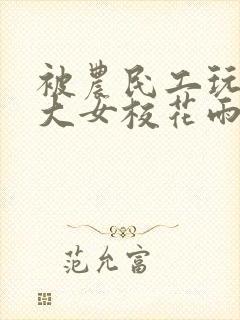 被農民工玩
大女校花雨
范允富